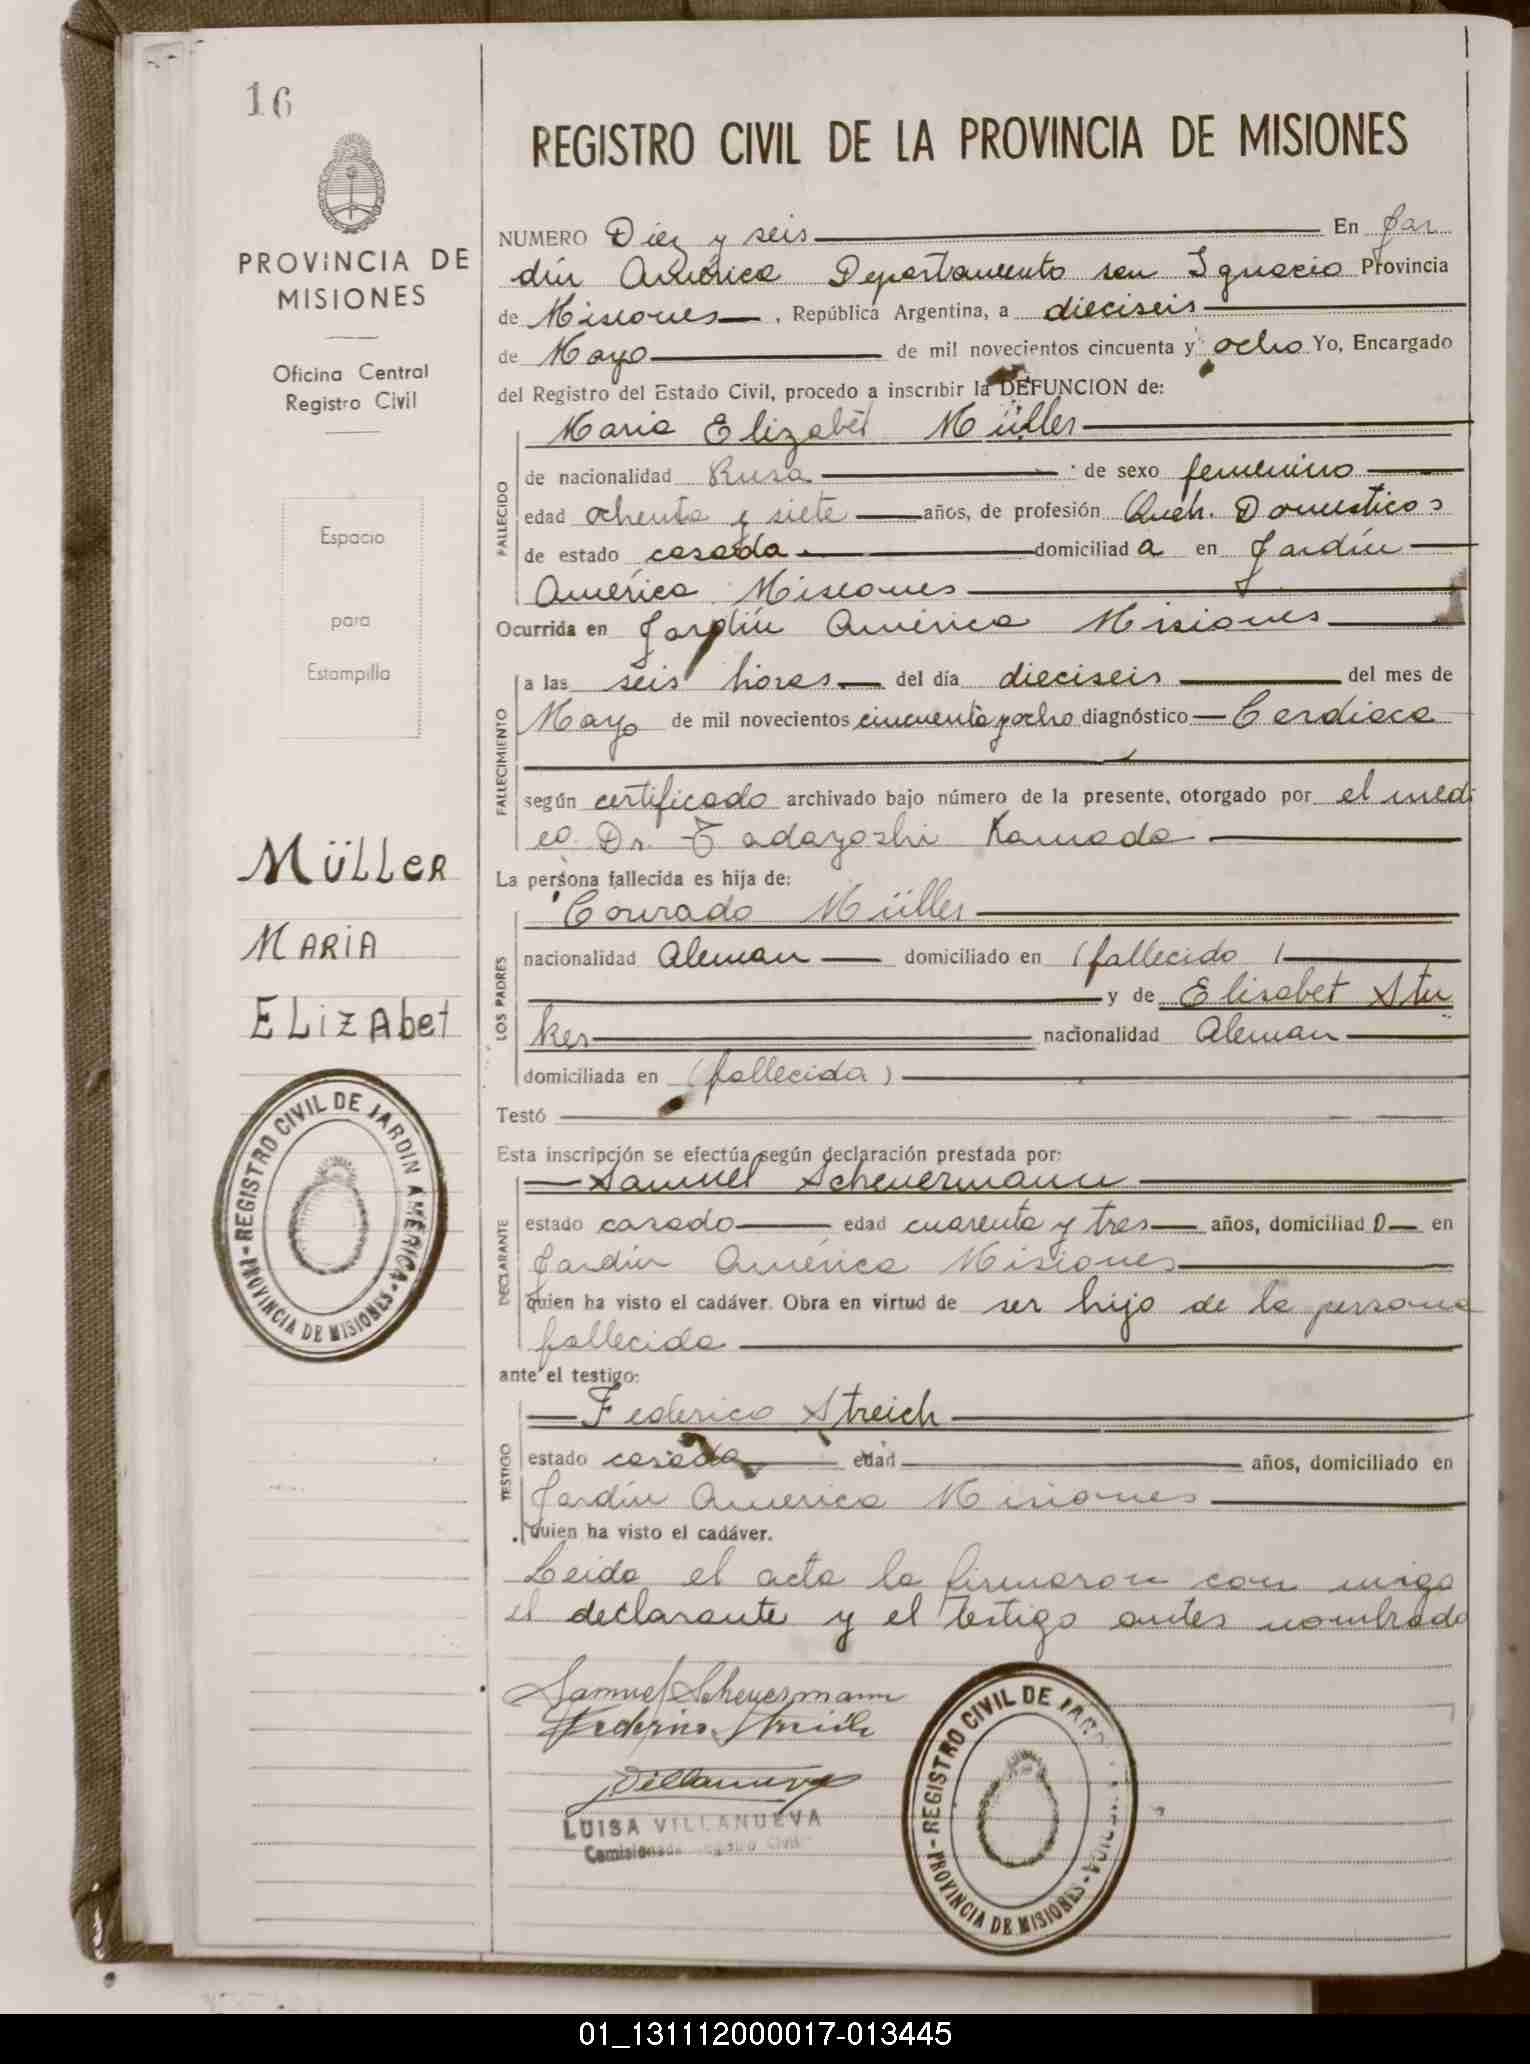 16
PROVINCIA DE
MISIONES
Oficina Central
Registro Civil
Espacio
para
Estampilla
MÜLLER
MARIA
ELIZAbet
REGISTRO CIVIL DE JARDIN AMÉRICA
PROVINCIA DE MISIONES
REGISTRO CIVIL DE LA PROVINCIA DE MISIONES
NUMERO Diez y seis En Jar
din América Departamento san Ignacio Provincia
de Misiones . República Argentina, a dieciseis
de Mayo de mil novecientos cincuenta y ocho Yo, Encargado
del Registro del Estado Civil, procedo a inscribir la DEFUNCION de:
Maria Elizabet Müller
FALLECIDO
de nacionalidad Rusa de sexo femenino
edad ochenta y siete años, de profesión Queh. Domesticos
de estado casada domiciliad a en Jardín
América Misiones
Ocurrida en Jardín América Misiones
FALLECIMIENTO
a las seis horas del día dieciseis del mes de
Mayo de mil novecientos cincuenta y ocho diagnóstico Cardiaca
según certificado archivado bajo número de la presente, otorgado por el medi
co Dr. Tadayoshi Kamada
La persona fallecida es hija de:
LOS PADRES
Conrado Müller
nacionalidad Aleman domiciliado en (fallecido)
y de Elisabet Stu
ker nacionalidad Aleman
domiciliada en (fallecida)
Testó
Esta inscripción se efectúa según declaración prestada por:
DECLARANTE
Samuel Scheuermann
estado casado edad cuarenta y tres años, domiciliad o en
Jardín América Misiones
quien ha visto el cadáver. Obra en virtud de ser hijo de la persona
fallecida
ante el testigo:
TESTIGO
Federico Streich
estado casado edad años, domiciliado en
Jardín America Misiones
quien ha visto el cadáver.
Leida el acta la firmaron con migo
el declarante y el testigo antes nombrado
Samuel Scheuermann
Federico Streich
Villanueva
LUISA VILLANUEVA
Comisionada Registro Civil
REGISTRO CIVIL DE JARDIN AMERICA
PROVINCIA DE MISIONES
01_131112000017-013445